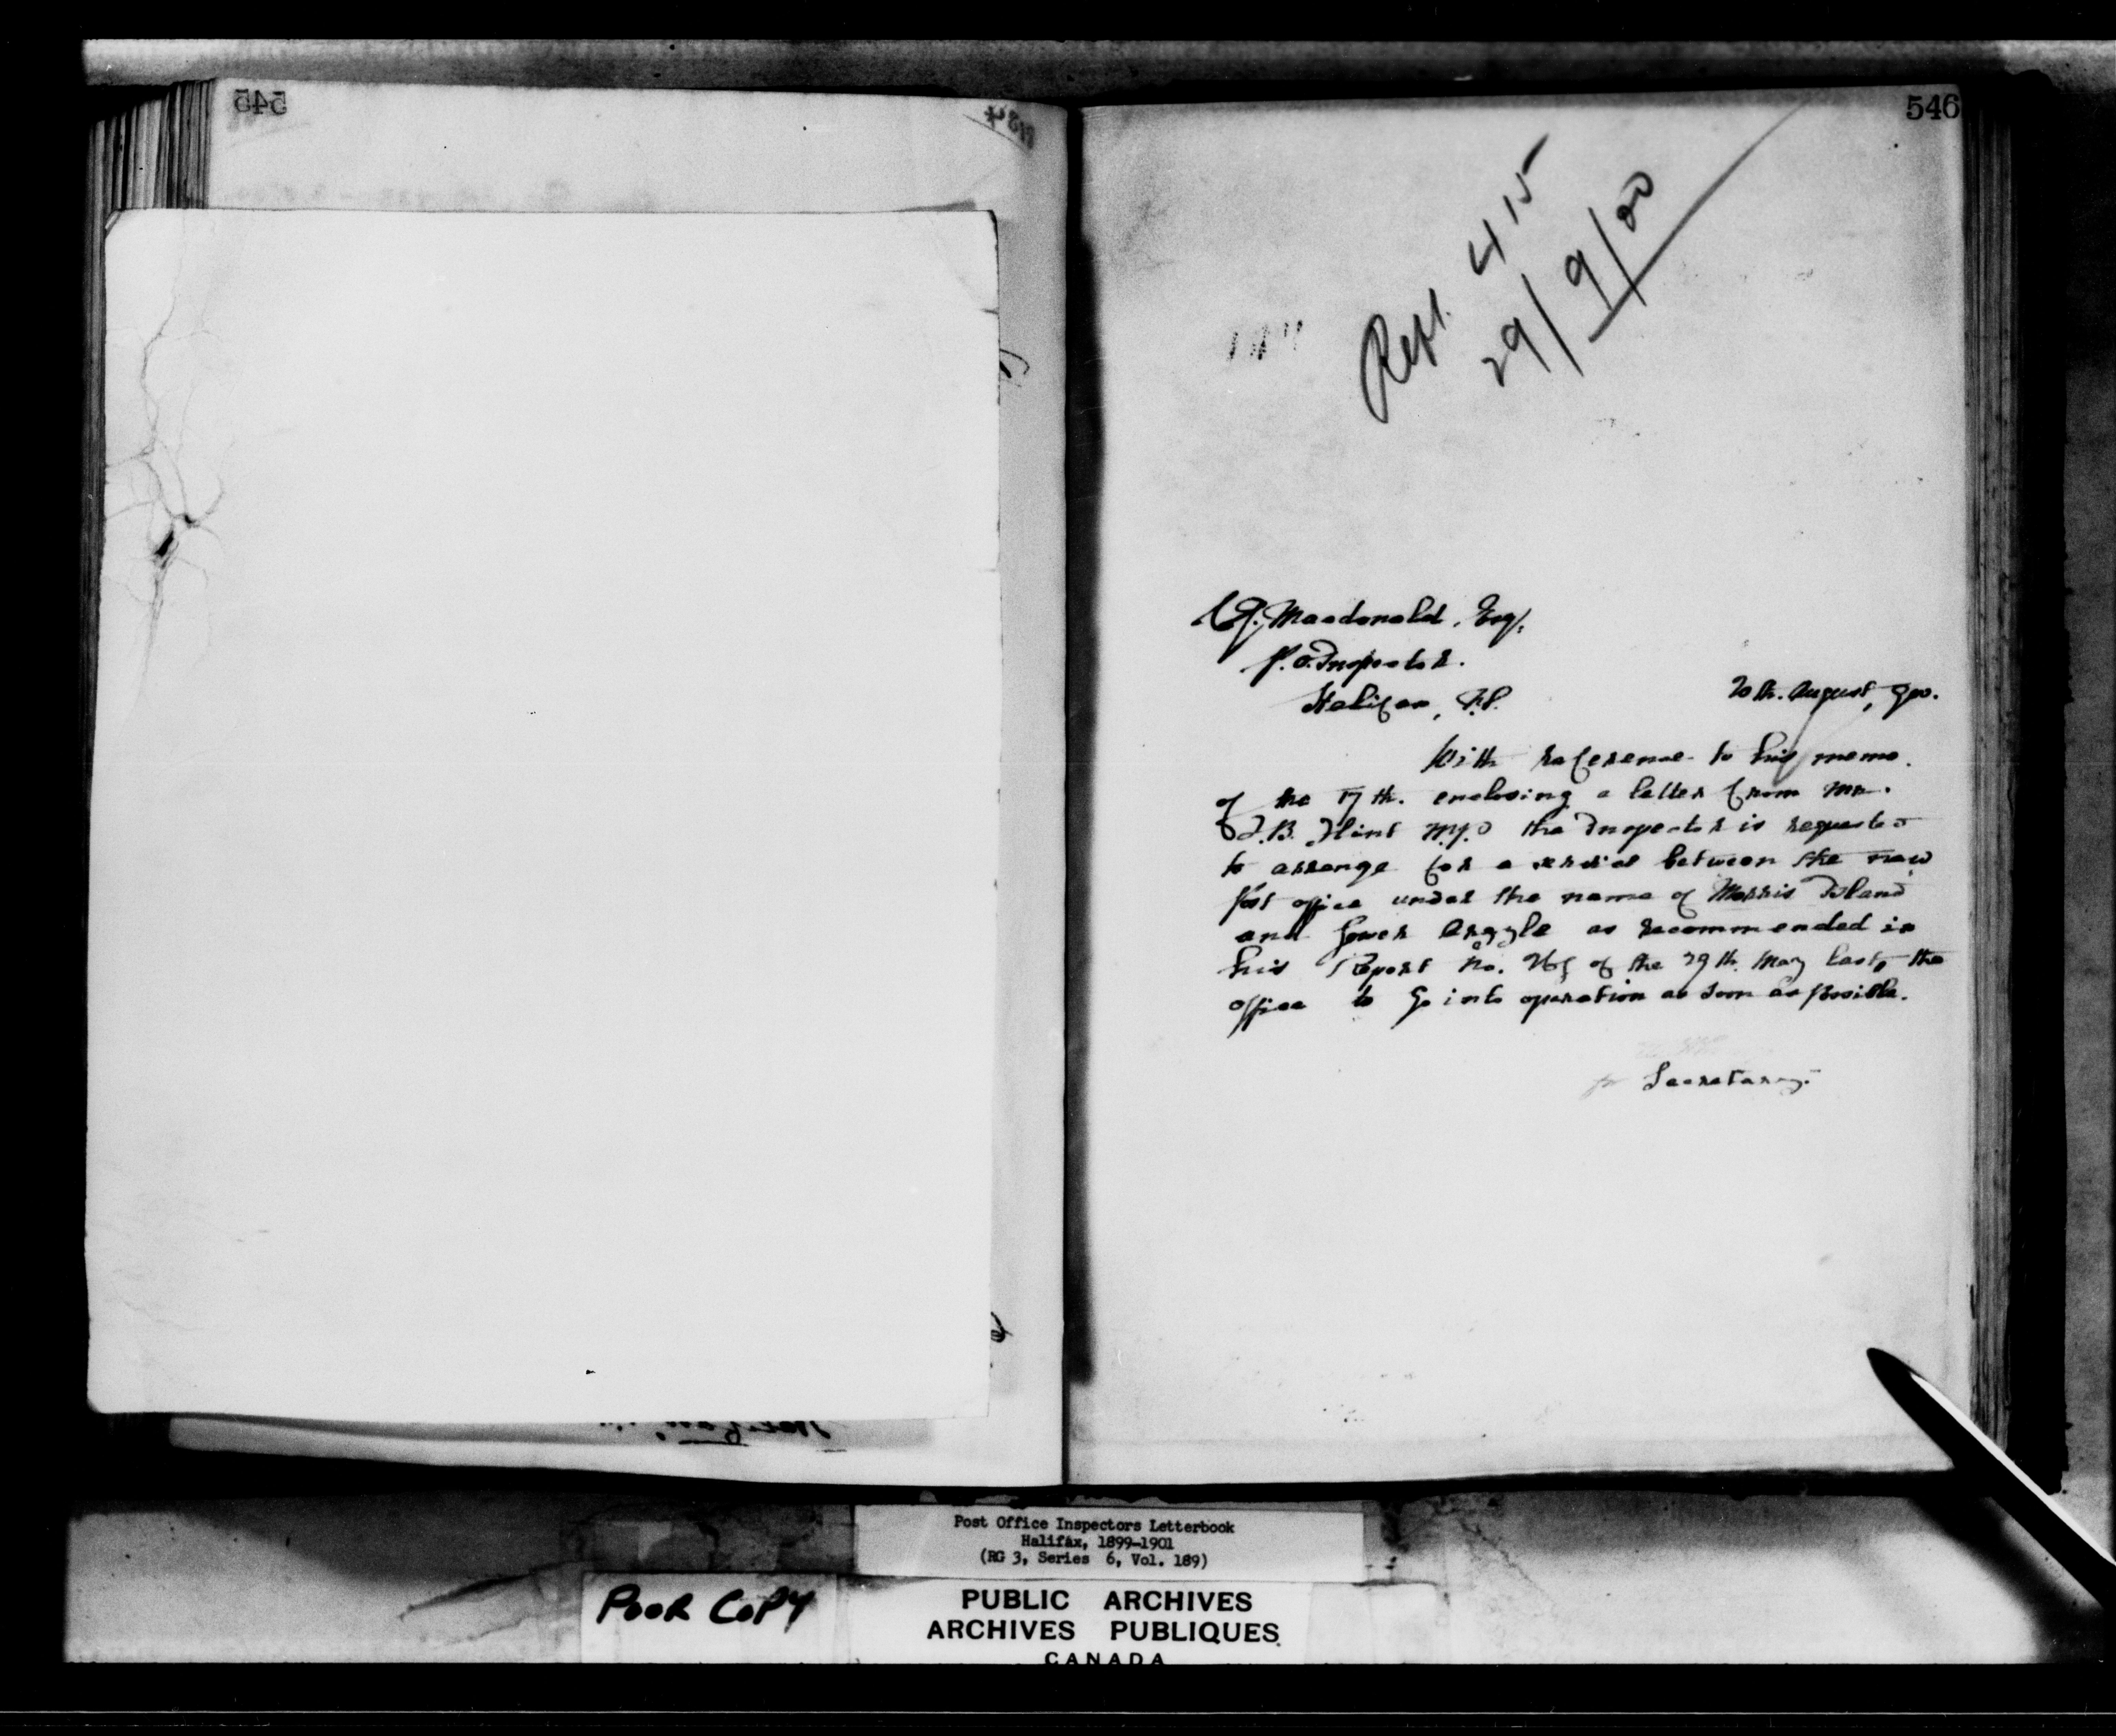 545
546
Rept. 415
29/9/00
C.J. Macdonald, Esq.
P.O. Inspector.
Halifax, N.S.
20th. August, 900.
With reference to his memo.
of the 17th. enclosing a letter from Mr.
T.B. Flint M.P. the Inspector is requested
to arrange for a service between the new
Post office under the name of Morris Island
and Lower Argyle as recommended in
his Report No. of the 29th. May last, the
office to go into operation as soon as possible.
for Secretary.
Post Office Inspectors Letterbook
Halifax, 1899-1901
(RG 3, Series 6, Vol. 189)
POOR COPY
PUBLIC ARCHIVES
ARCHIVES PUBLIQUES
CANADA